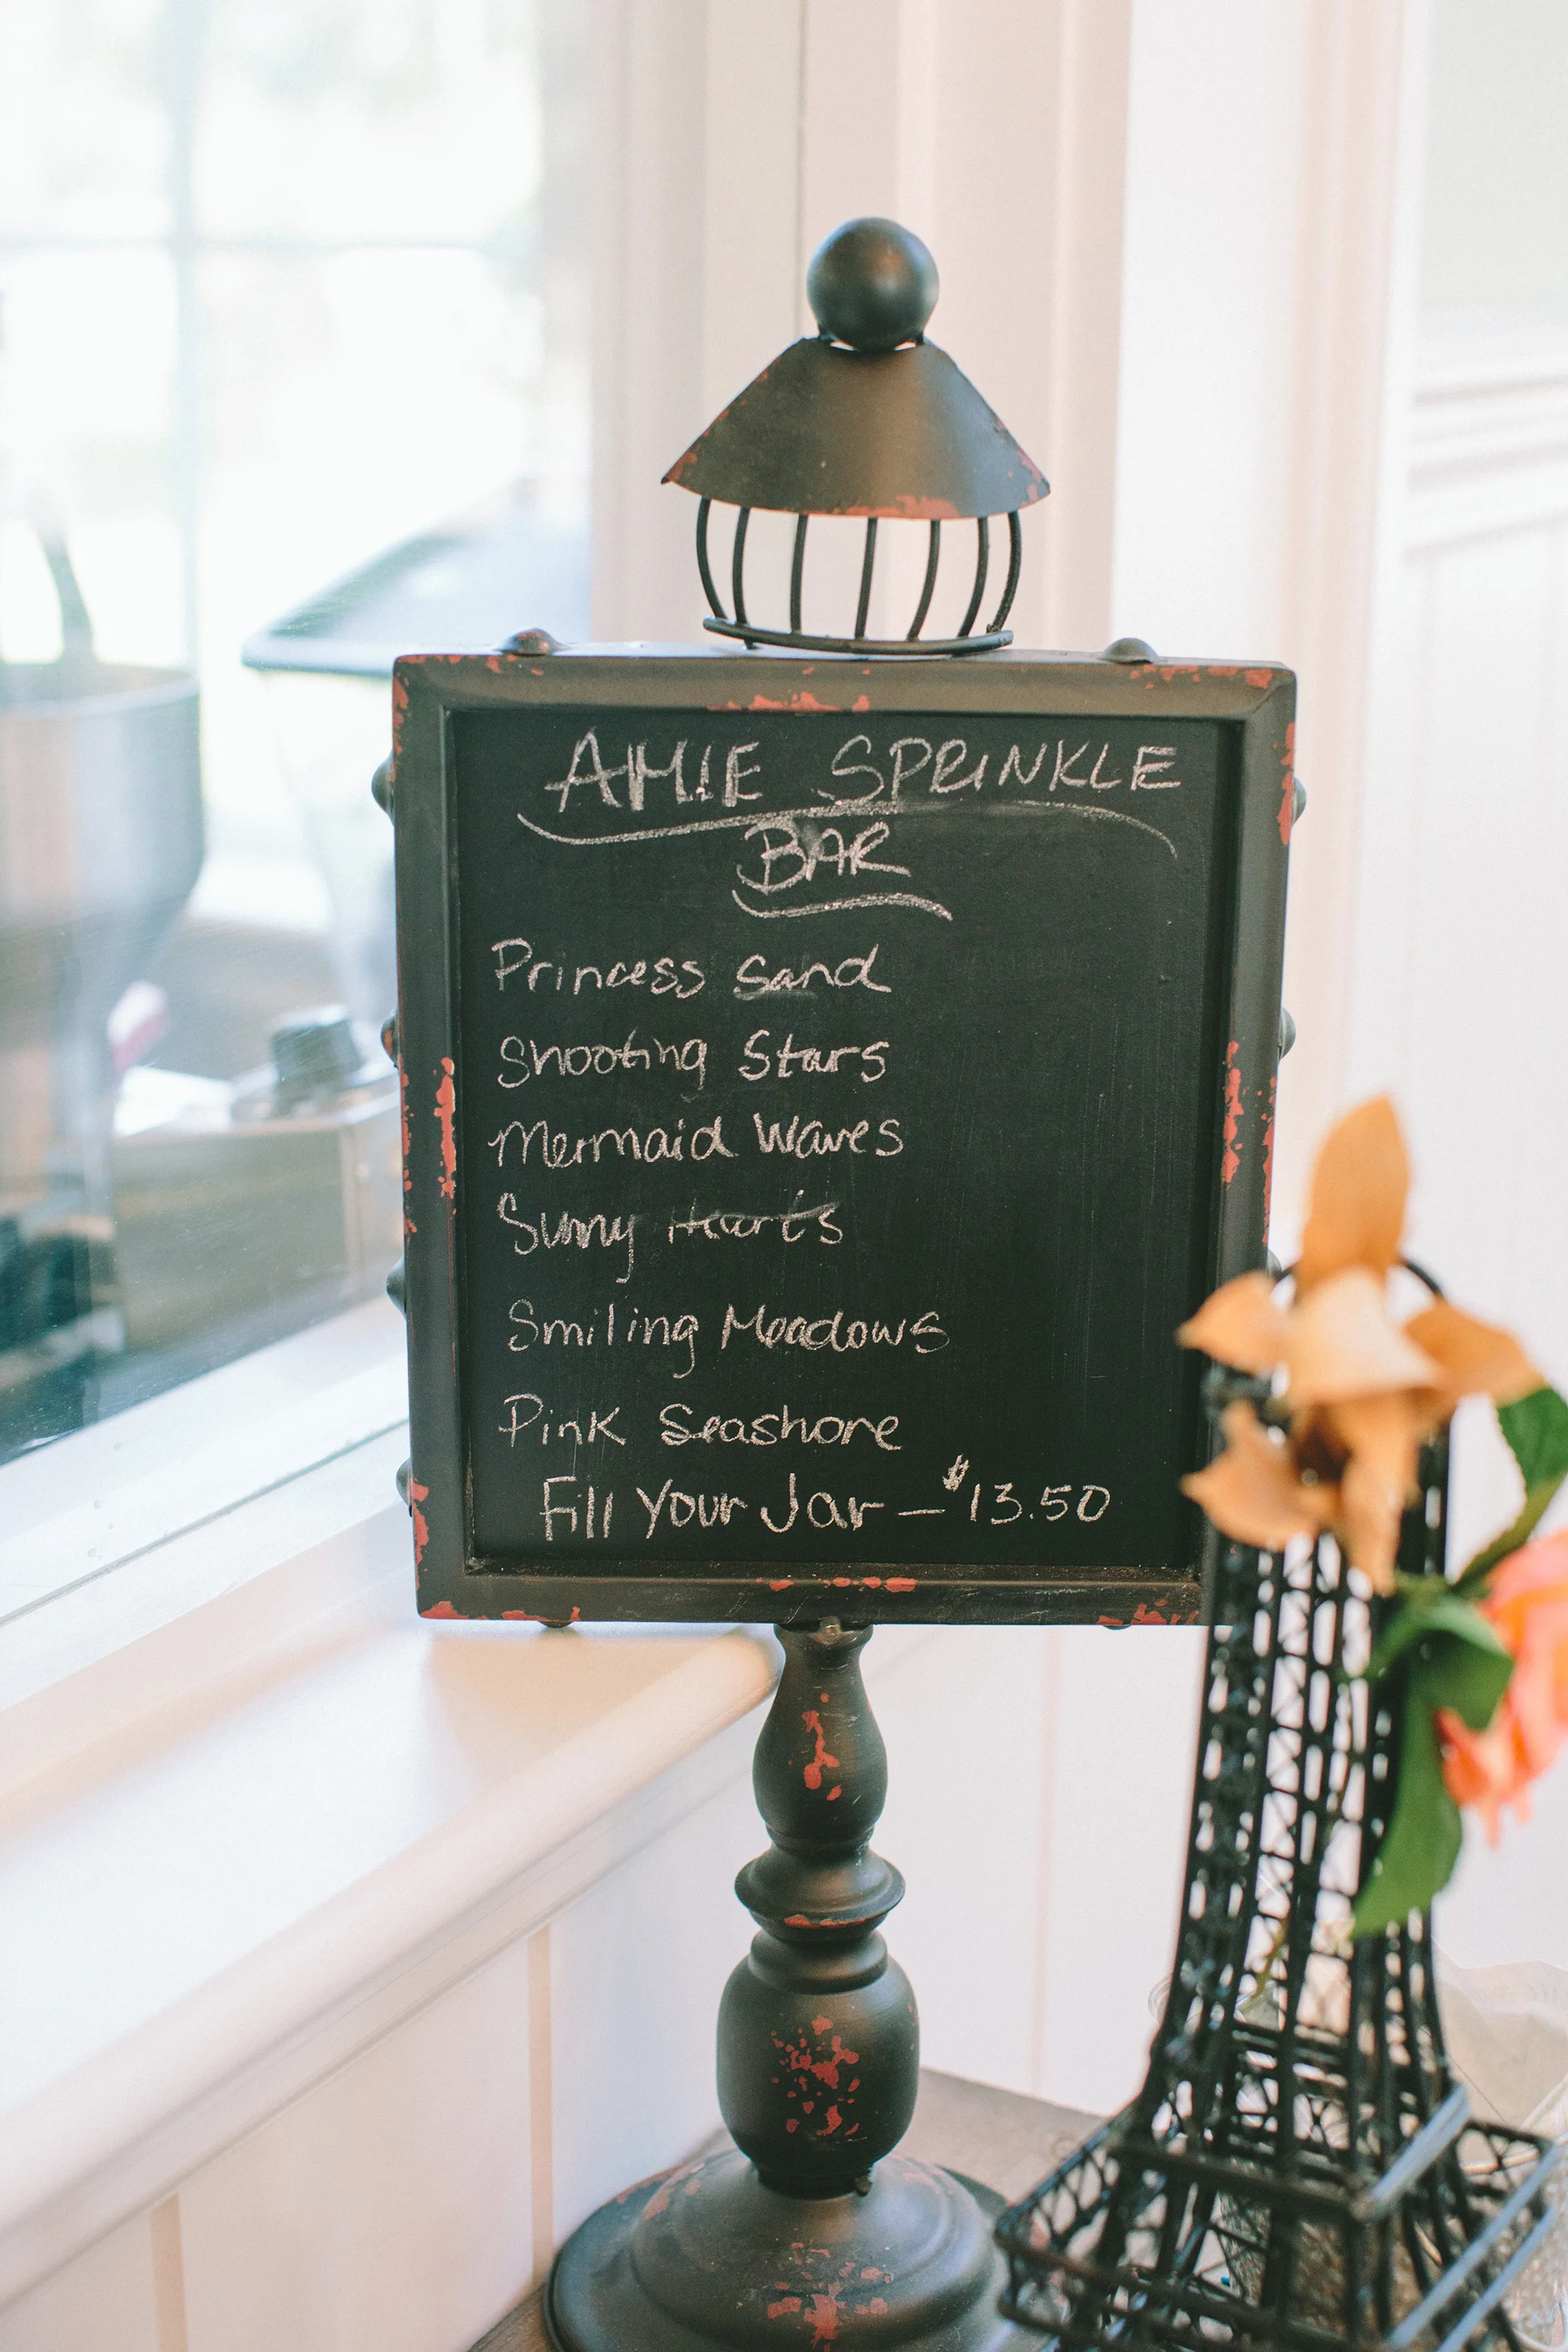 AMIE SPRINKLE
BAR
Princess Sand
Shooting Stars
Mermaid Waves
Sunny Hearts
Smiling Meadows
Pink Seashore
Fill Your Jar - $13.50